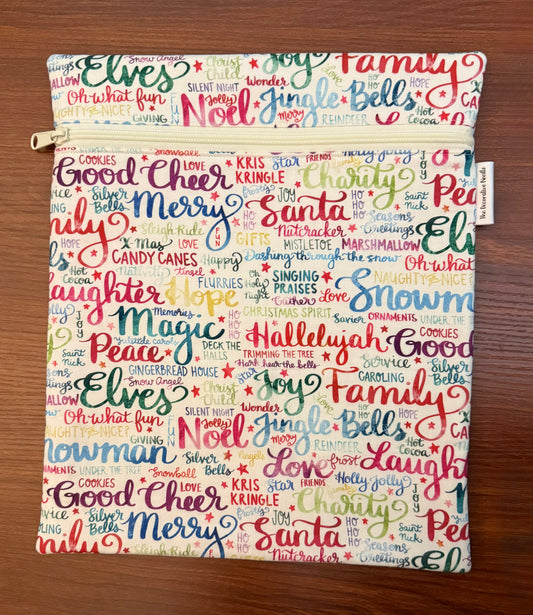 Greetings Snow Angel Christ Child Joy Love HO HO HO Family
MALLOW Elves SILENT NIGHT Wonder HOPE
Oh what fun FUN Jolly Jingle Bells CARO
NAUGHTY OR NICE? GIVING Noel Merry REINDEER Hot Cocoa
Snowball FRIENDS Holly Jolly JOY
COOKIES LOVE KRIS KRINGLE Star Charity
Good Cheer Frosty JOY Saint Nick
Silver Bells Merry HO HO HO Santa Seasons Greetings Peace
Family Sleigh Ride FUN GIFTS Nutcracker
HOPE X-Mas LOVE MISTLETOE MARSHMALLOW Elves
Hot Cocoa CANDY CANES Happy Dashing through the snow Oh what
Nativity Tinsel FLURRIES Oh Holy Night SINGING PRAISES NAUGHTY OR NICE?
Laughter Hope Gather Love Snowman
JOY Memories CHRISTMAS SPIRIT Savior ORNAMENTS UNDER THE TREE
Magic Hallelujah COOKIES
Saint Nick Peace Yuletide Carols DECK THE HALLS TRIMMING THE TREE Service Good
GINGERBREAD HOUSE Hark hear the bells CAROLING Silver Bells
Seasons Greetings Snow Angel Christ Child Star Joy Love HO HO HO Family
Elves SILENT NIGHT Wonder HOPE
Oh what fun FUN Jolly Jingle Bells
NAUGHTY OR NICE? GIVING Noel Merry REINDEER Hot Cocoa
Snowman Silver Bells Angels Love frost Laughter
ORNAMENTS UNDER THE TREE Snowball FRIENDS Holly Jolly JOY
COOKIES LOVE KRIS KRINGLE Star Charity
Good Cheer Frosty JOY Saint Nick
CAROLING Silver Bells Merry HO HO HO Santa HO HO HO Seasons Greetings Peace
Family Sleigh Ride Nutcracker
The Decorative Needle